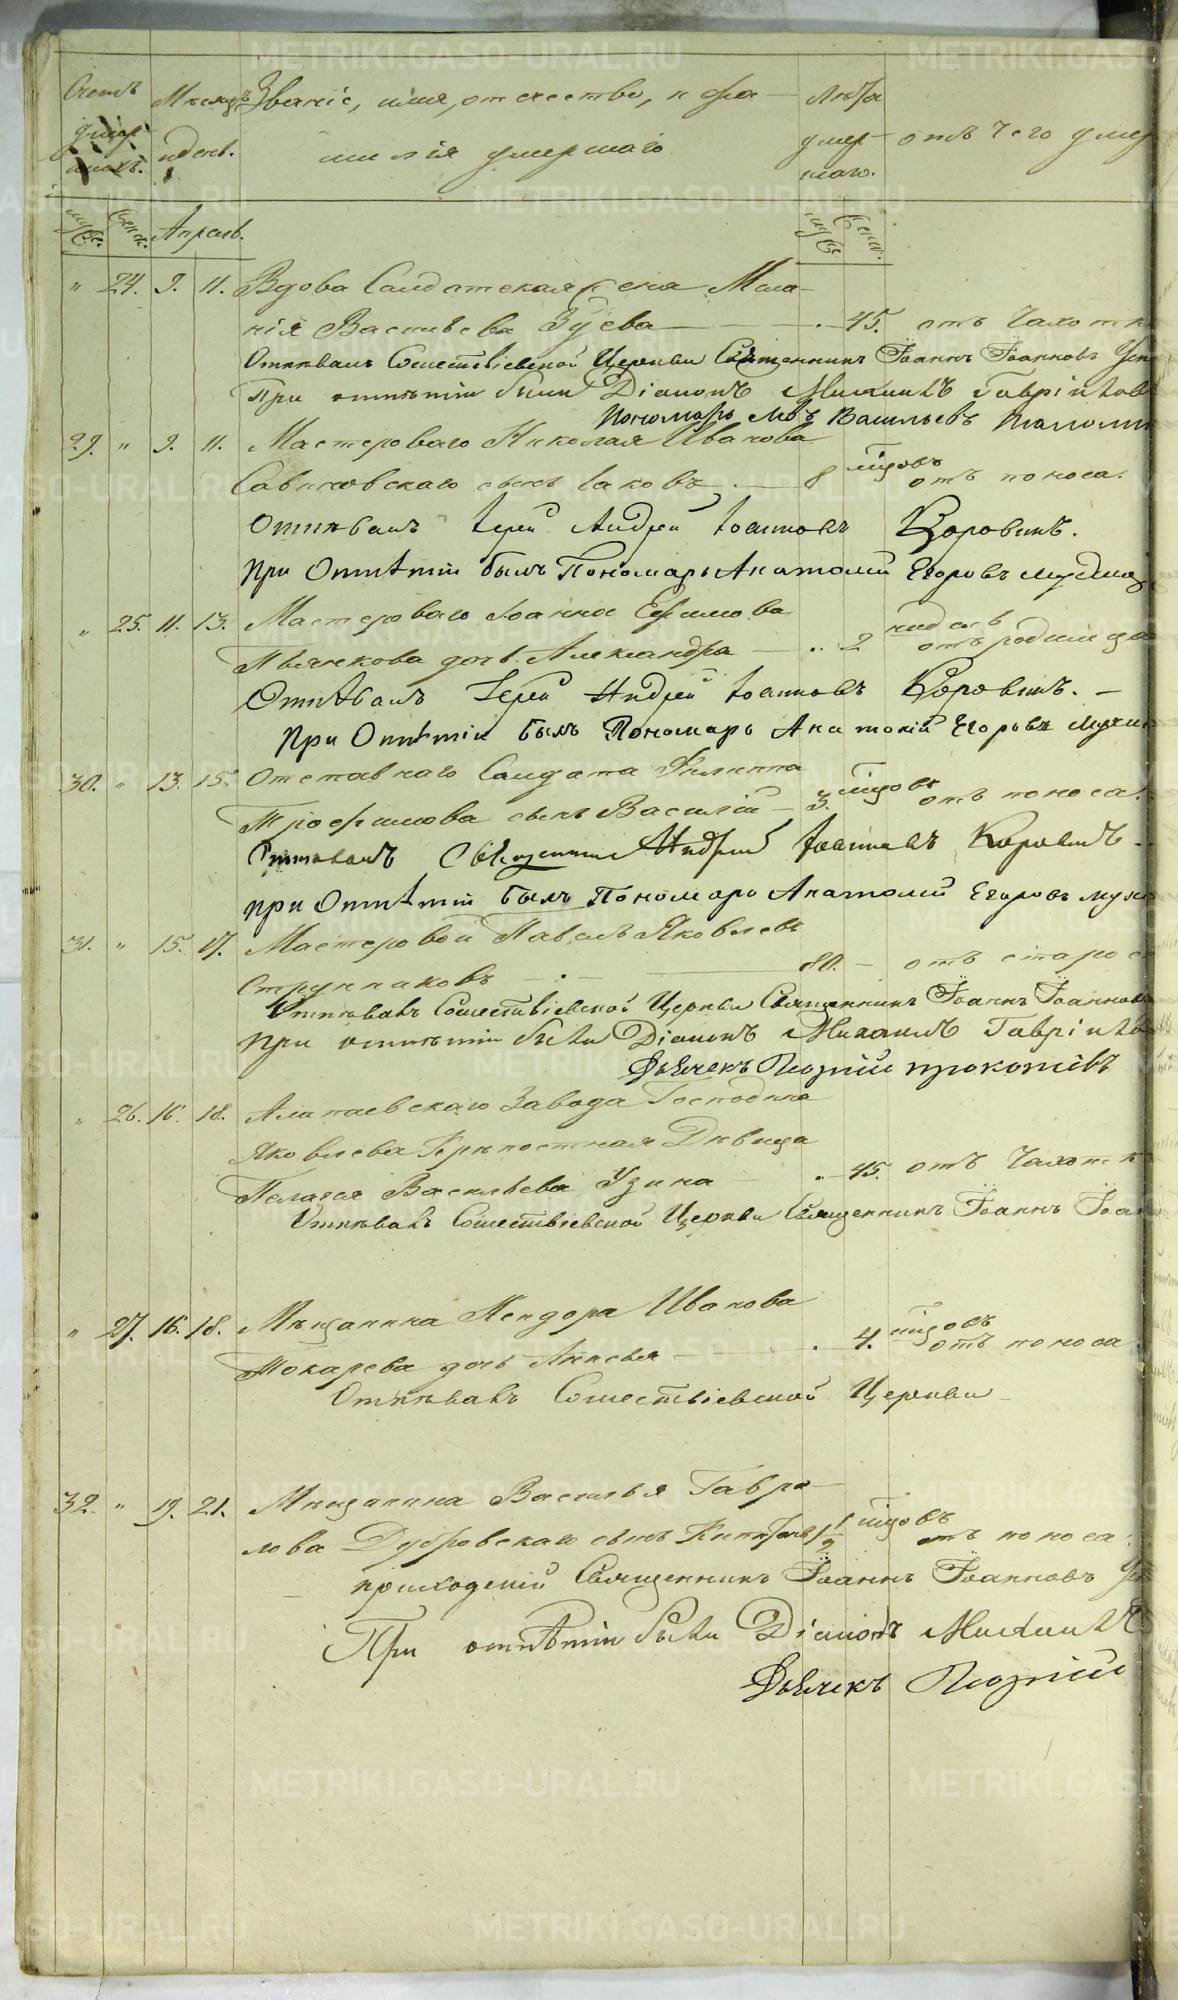 Счетъ умер шихъ. Мѣсяцъ и день. Званіе, имя, отчество, и фа
милія умершаго
Лѣта умер шаго. отъ чего умер
муже. женс. Апрель. муже женс.
" 24. 9. 11. Вдова Салдатская жена Мела
нія Васильева Зуева .. 45. отъ Чахотк
Отпѣвалъ Сошествіевской Церкви Священникъ Іоаннъ Іоанновъ
При отпѣтіи были Діаконъ Михаилъ Гавріиловъ
Пономарь Левъ Васильевъ
29. " 9. 11. Мастероваго Николая Иванова
Савиновскаго сынъ Іаковъ. 8 мѣсяцовъ отъ поноса.
Отпѣвалъ Іерей Андрей Іоанновъ Коровинъ.
При Отпѣтіи былъ Пономарь Анатолій Егоровъ
" 25. 11. 13. Мастероваго Іоанна Ефимова
Пьянкова дочь Александра .. 2 недель отъ родимца
Отпѣвалъ Іерей Андрей Іоанновъ Коровинъ.
При Отпѣтіи былъ Пономарь Анатолій Егоровъ
30. " 13. 15. Отставнаго Салдата Филиппа
Трофимова сынъ Василій 3. мѣсяцовъ отъ поноса.
Отпѣвалъ Священникъ Андрей Іоанновъ Коровинъ
При Отпѣтіи былъ Пономарь Анатолій Егоровъ
31. " 15. 17. Мастеровой Павелъ Яковлевъ
80. отъ старос
Отпѣвалъ Сошествіевской Церкви Священникъ Іоаннъ Іоанновъ
При отпѣтіи были Діаконъ Михаилъ Гавріилов
Дьячекъ Георгій Прокопіевъ
" 26. 16. 18. Алапаевскаго Завода Господина
Яковлева Крѣпостная Дѣвица
Пелагея Васильева Узина .. 45. отъ Чахотк
Отпѣвалъ Сошествіевской Церкви Священникъ Іоаннъ Іоан
" 27. 16. 18. Мѣщанина Иванова
Токарева дочь Анисья . 4. мѣсяцовъ отъ поноса
Отпѣвалъ Сошествіевской Церкви
32. " 19. 21. Мѣщанина Василья Гаври
лова Дубровскаго сынъ 1 1/2 мѣсяцовъ отъ поноса.
приходскій Священникъ Іоаннъ Іоанновъ
При отпѣтіи были Діаконъ Михаилъ
Дьячекъ Георгій
METRIKI.GASO-URAL.RU